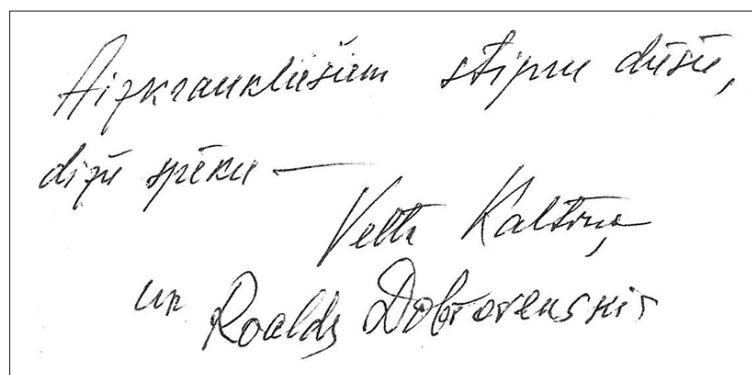 Aizkraukliešiem stipru dūšu,
dižu spēku —
Velta Kaltiņa
un Roalds Dobrovenskis